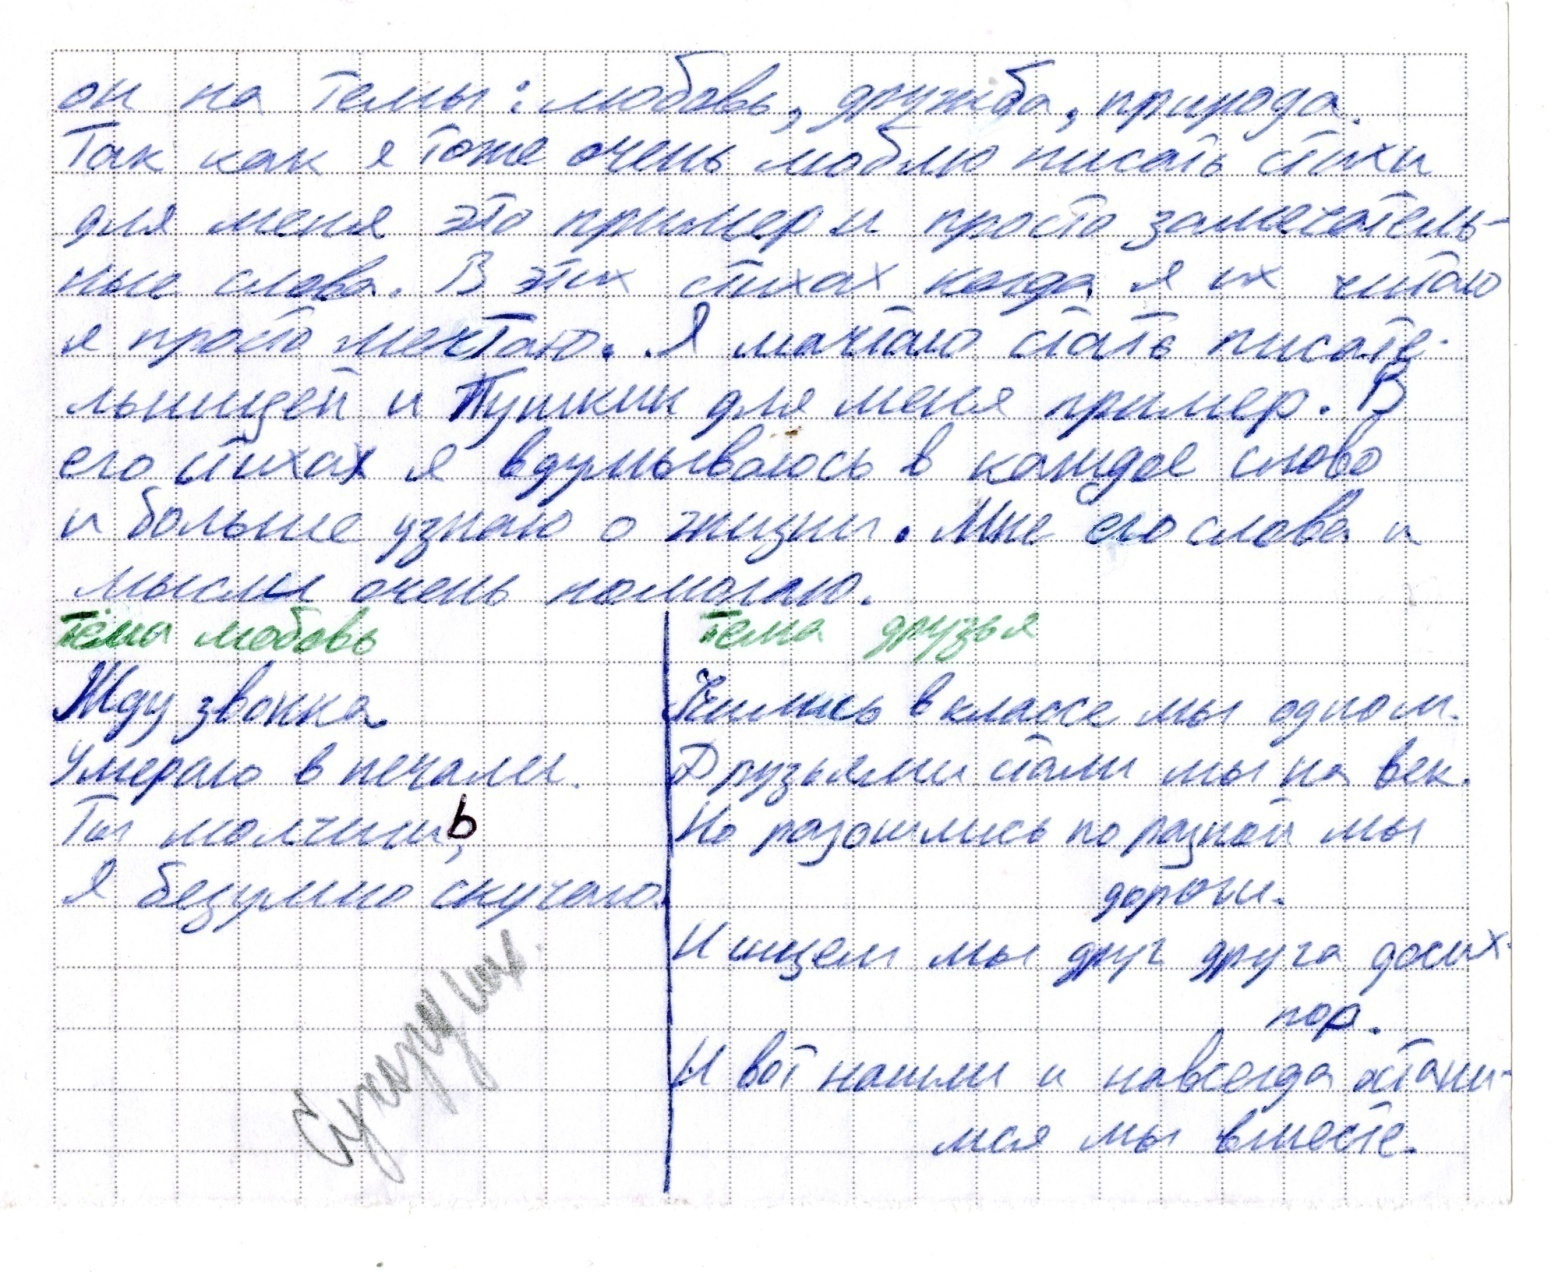 он на темы: любовь, дружба, природа.
Так как я тоже очень люблю писать стихи
для меня это пример и просто замечатель-
ные слова. В этих стихах когда я их читаю
я просто мечтаю. Я мачтаю стать писате-
льницей и Пушкин для меня пример. В
его стихах я вдумываюсь в каждое слово
и больше узнаю о жизни. Мне его слова и
мысли очень помогаю.
Тема любовь
Жду звонка
Умераю в печали.
Ты молчишь,
Я безумно скучаю.
Тема друзья
Учились в классе мы одном.
Друзьями стали мы на век.
Но разошлись по разной мы
дороги.
И ищем мы друг друга досих-
пор.
И вот нашли и навсегда остани-
мся мы вместе.